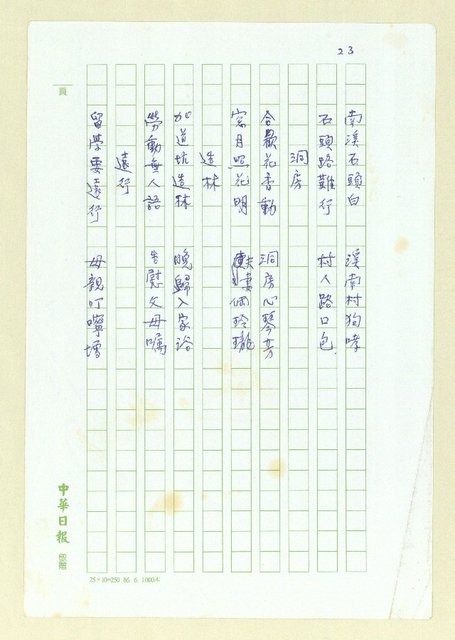 23
南溪石頭白 溪南村狗哮
石頭路難行 村人路口包
洞房
合歡花香動 洞房心琴芳
窗月照花明 妻倆玲瓏
造林
加道坑造林 晚歸入家浴
勞動無人語 告慰父母囑
遠行
留學要遠行 母親叮嚀增
頁
中華日報
25×10=250 86. 6. 1000本